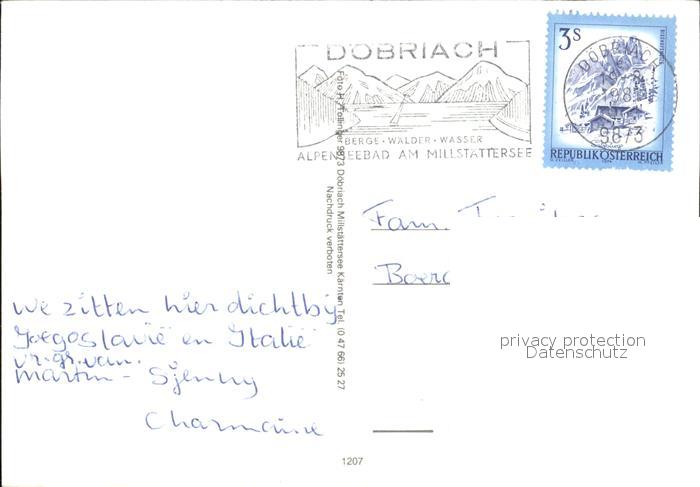 DÖBRIACH
BERGE · WÄLDER · WASSER
ALPENSEEBAD AM MILLSTÄTTERSEE
3s
DÖBRIACH
9873
REPUBLIK ÖSTERREICH
Foto H. Tollinger 9873 Döbriach Millstättersee Kärnten Tel. (0 47 66) 25 27
Nachdruck verboten
Fam.
Boer
we zitten hier dichtby
Joegoslavië en Italië
vr. gr. van.
martin - Sjenny
Charmaine
privacy protection
Datenschutz
1207